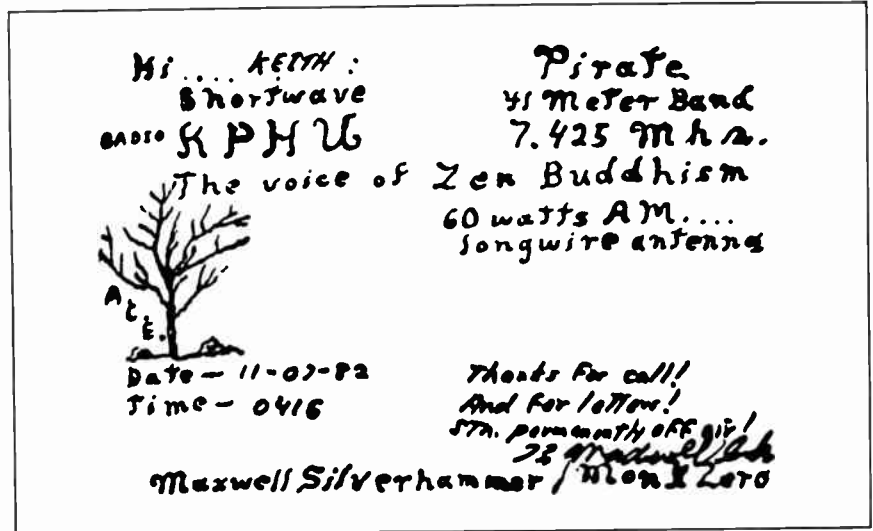 Hi.... KEITH:
Shortwave
RADIO KPHU
Pirate
41 Meter Band
7.425 Mhz.
The voice of Zen Buddhism
60 watts AM....
longwire antenna
Date - 11-07-82
Time - 0416
Thanks for call!
And for letter!
STN. permanently off air!
73
Maxwell Silverhammer / Monk Zero